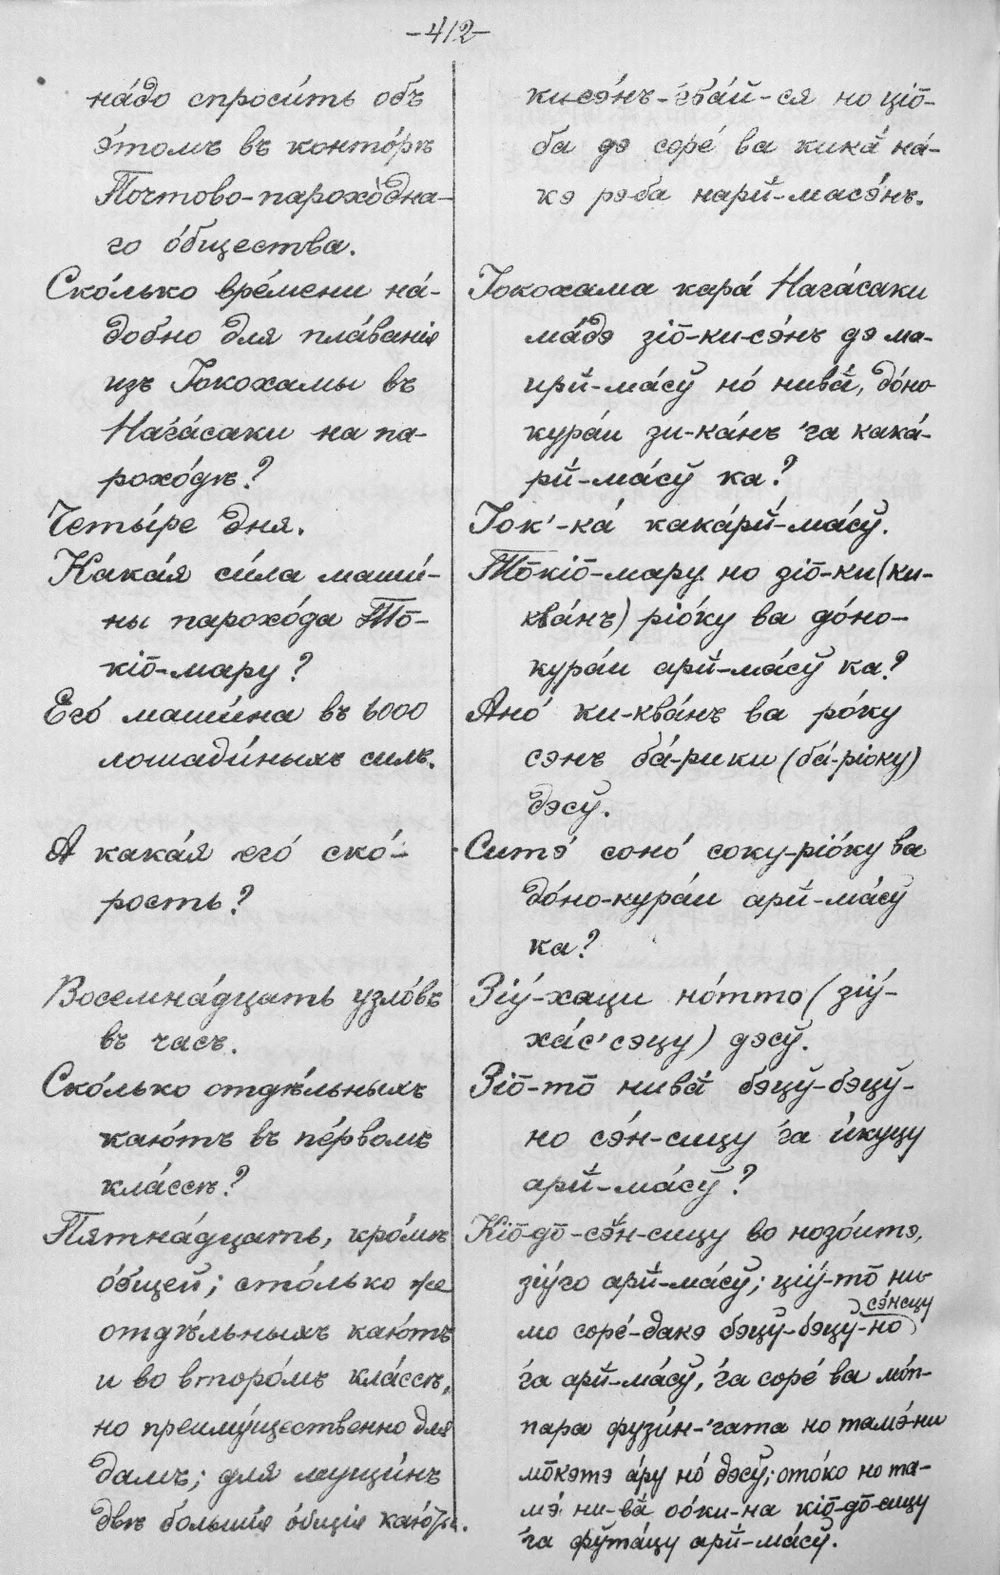 -412-
на́до спроси́ть объ
э́томъ въ конто́рѣ
Почтово-парохо́дна-
го о́бщества.
Ско́лько вре́мени на́-
добно для пла́ванія
изъ Іокохамы въ
Нага́саки на па-
рохо́дѣ?
Четы́ре дня.
Кака́я си́ла маши́-
ны парохо́да То̄-
кіо̄-мару?
Его́ маши́на въ 6000
лошади́ныхъ силъ.
А кака́я его́ ско́-
рость?
Восемна́дцать узло́въ
въ часъ.
Ско́лько отдѣ́льныхъ
каю́тъ въ пе́рвомъ
кла́ссѣ?
Пятна́дцать, кро́мѣ
о́бщей; сто́лько же
отдѣ́льныхъ каю́тъ
и во второ́мъ кла́ссѣ,
но преиму́щественно для
дамъ; для мущи́нъ
двѣ больші́я о́бщія каю́ты.
кисэ́нъ-гба́й-ся но ціо̄-
ба дэ соре́ ва кика́ на́-
кэ рэба нарӣ-масэ́нъ.
Іокохама кара́ Нага́саки
ма́дэ зіо̄-ки-сэ́нъ дэ ма-
ирӣ-ма́сӯ но́ нива̄, до́но
кура́и зи-ка́нъ ’га кака́-
рӣ-ма́сӯ ка?
Іок’-ка́ кака́рӣ-ма́сӯ.
То̄кіо̄-мару но зіо̄-ки (ки-
ква́нъ) ріо́ку ва до́но-
кура́и арӣ-ма́сӯ ка?
Ано́ ки-ква́нъ ва ро́ку
сэнъ ба́-рики (ба́-ріоку)
дэсӯ.
Ситэ́ соно́ соку-ріо́ку ва
до́но-кура́и арӣ-ма́сӯ
ка?
Зіӯ́-хаци но́тто (зіӯ́-
ха́с’сэцу) дэсӯ.
Зіо̄-то̄ нива̄ бэцӯ-бэцӯ-
но сэ́н-сицу ’га и́куцу
арӣ-ма́сӯ?
Кіо̄-до̄-сэ́н-сицу во нозо́итэ,
зіӯ́го арӣ-ма́сӯ; ціӯ́-то̄ ни
сэ́нсицу
мо соре́-дакэ бэцӯ-бэцӯ-но
’га арӣ-ма́сӯ, ’га соре́ ва мо́п-
пара фузи́н-’гата но тамэ́-ни
мо̄кэтэ а́ру но́ дэсӯ; ото́ко но та-
мэ́ ни-ва̄ оо́ки-на кіо̄-до̄-сицу
’га фӯта́цу арӣ-ма́сӯ.